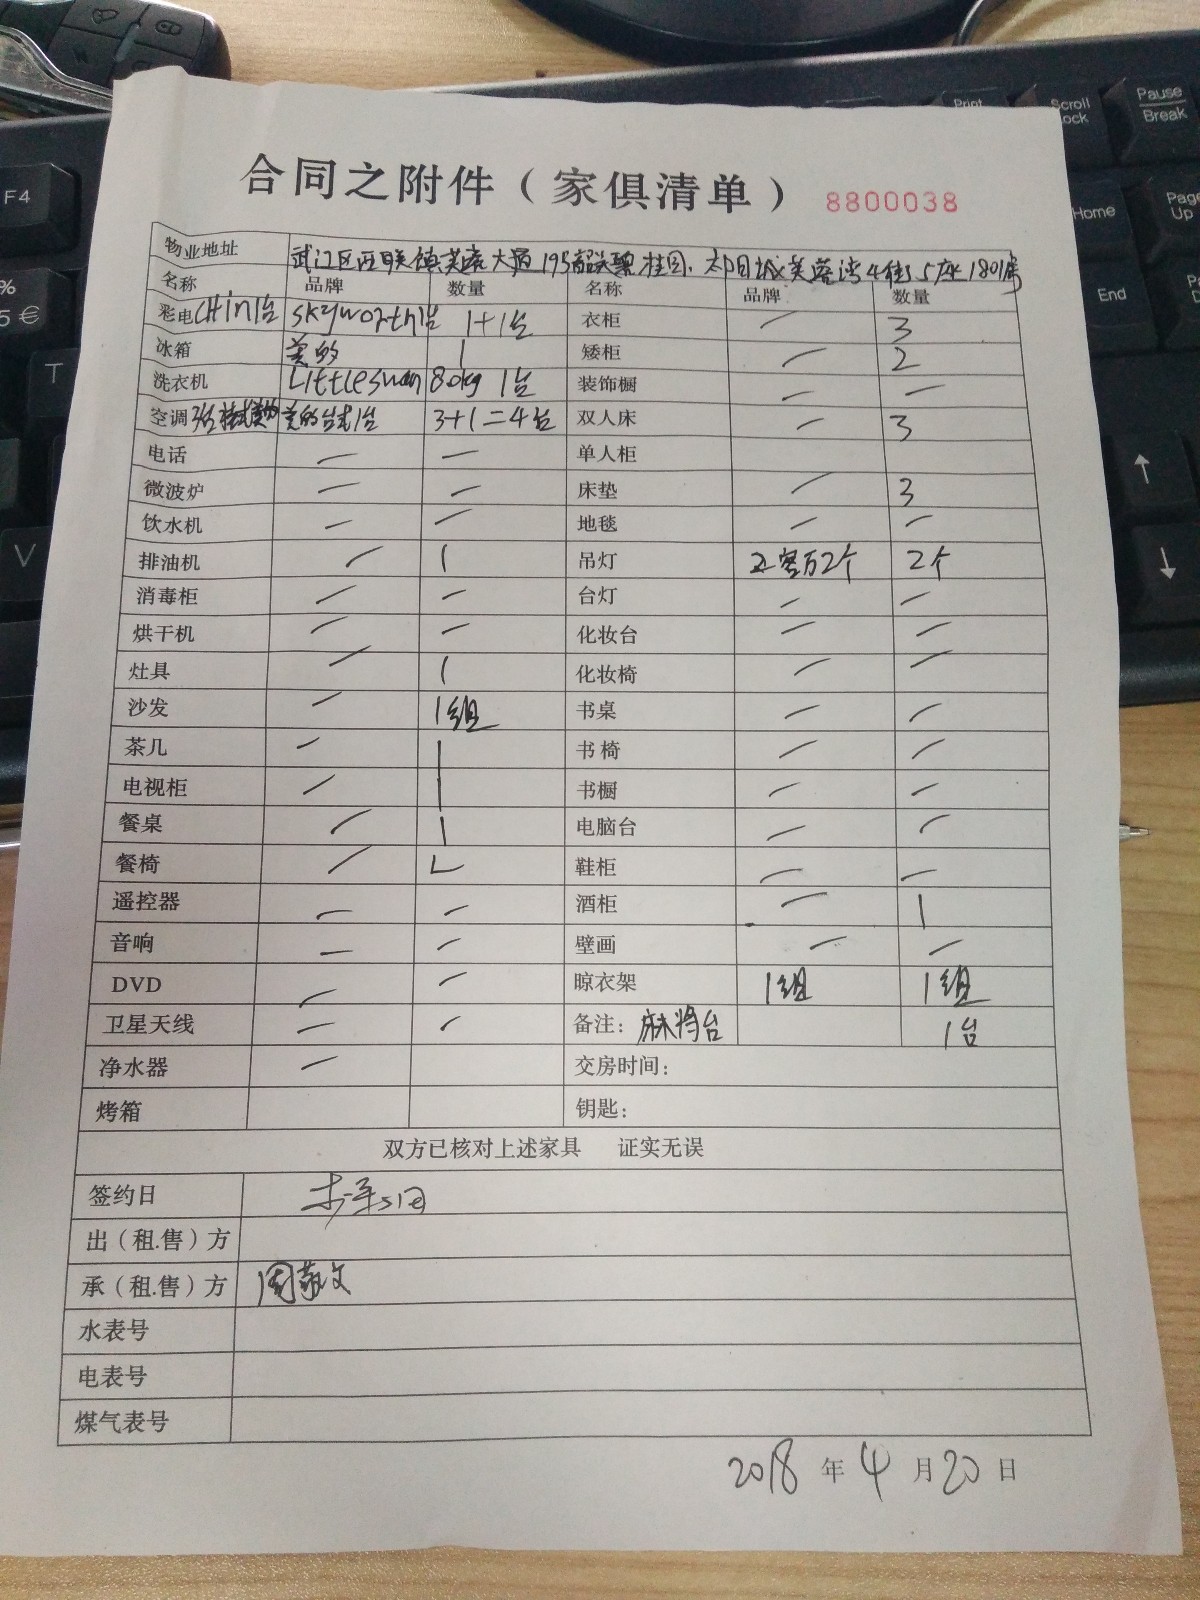 合同之附件（家俱清单） 8800038
物业地址 武江区西联镇芙蓉大道195韶关碧桂园.太阳城芙蓉湾4街5座1801房
名称 品牌 数量 名称 品牌 数量
彩电 1台 skyworth1台 1+1台 衣柜 — 3
冰箱 美的 1 矮柜 — 2
洗衣机 Littleswan 8.0kg 1台 装饰橱 — —
空调 3台挂式美的 美的台式1台 3+1=4台 双人床 — 3
电话 — — 单人柜
微波炉 — — 床垫 — 3
饮水机 — — 地毯 — —
排油机 — 1 吊灯 2个 2个
消毒柜 — — 台灯 — —
烘干机 — — 化妆台 — —
灶具 — 1 化妆椅 — —
沙发 — 1组 书桌 — —
茶几 — 1 书椅 — —
电视柜 — 1 书橱 — —
餐桌 — 1 电脑台 — —
餐椅 — 鞋柜 — —
遥控器 — — 酒柜 — 1
音响 — — 壁画 — —
DVD — — 晾衣架 1组 1组
卫星天线 — — 备注：麻将台 1台
净水器 — 交房时间：
烤箱 钥匙：
双方已核对上述家具 证实无误
签约日
出（租.售）方
承（租.售）方 周敬文
水表号
电表号
煤气表号
2018 年 4 月 20 日
F4
%
5 €
T
V
Print
Scroll
Lock
Pause
Break
Home
Page
Up
End
↑
↓